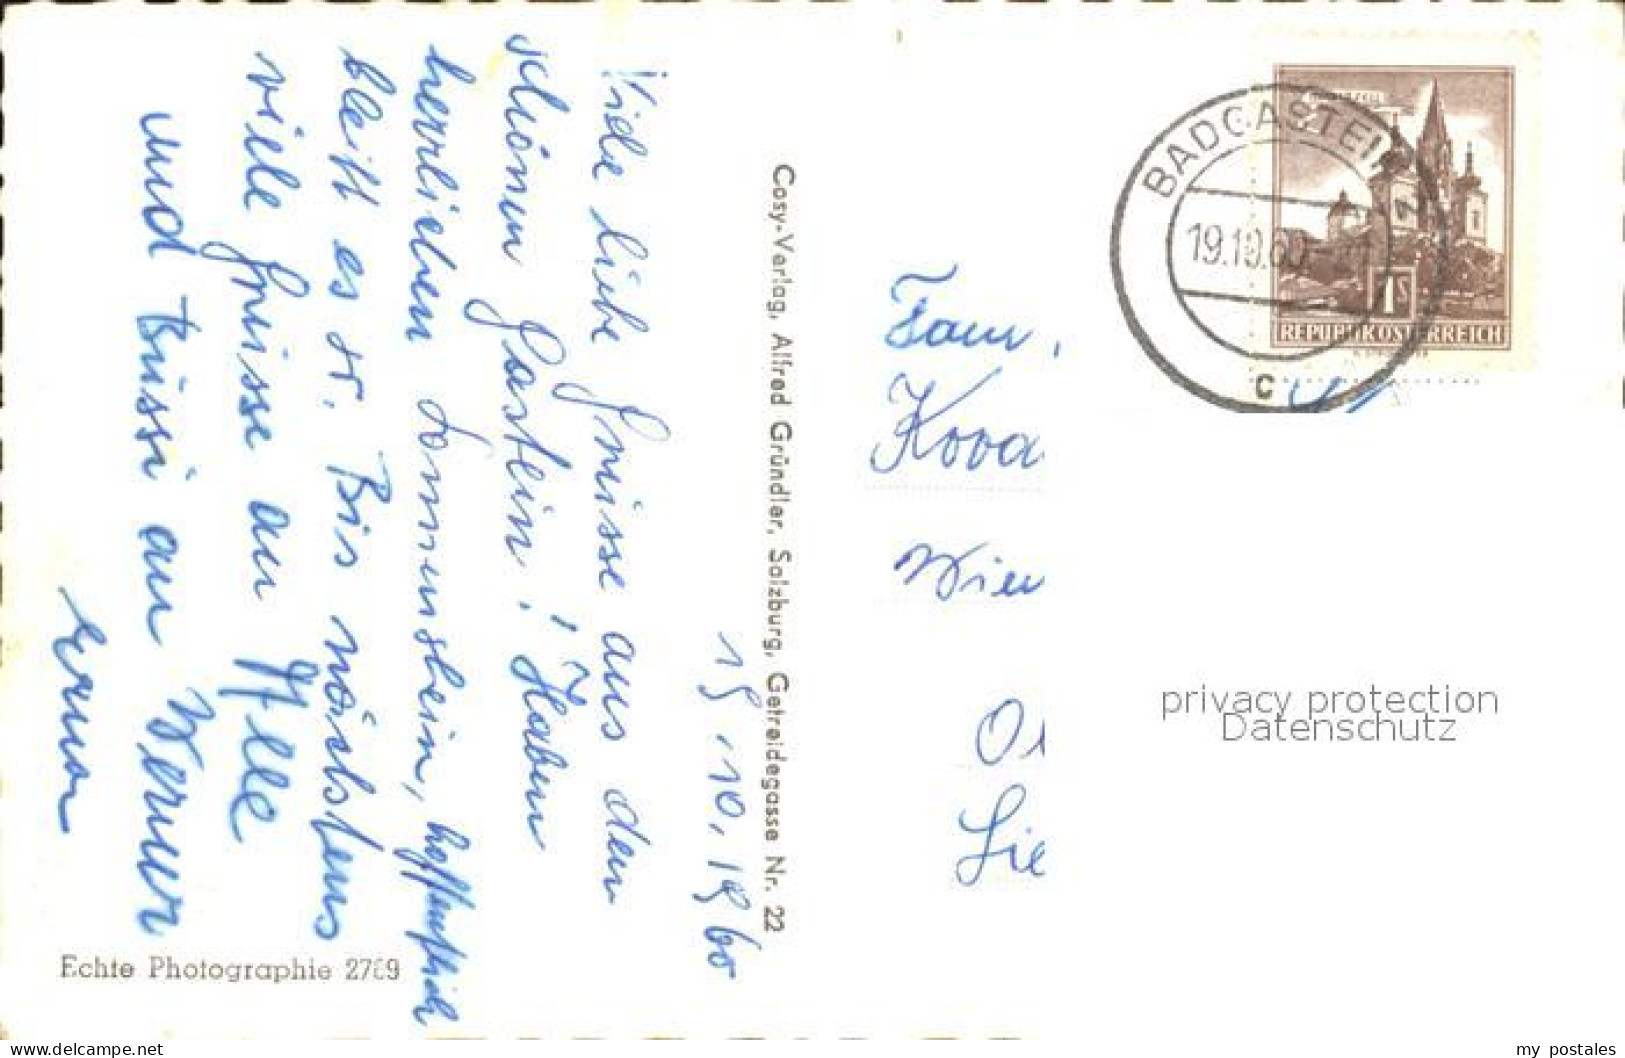 15.10.1960
Viele liebe Grüsse aus dem
schönen Gastein! Haben
herrlichen Sonnenschein, hoffentlich
bleibt es so. Bis nächstens
viele Grüsse an Alle
und Bussi an Werner
Erna
Cosy-Verlag, Alfred Gründler, Salzburg, Getreidegasse Nr. 22
Echte Photographie
BADGASTEIN
19.10.60
c
1 S
REPUBLIK ÖSTERREICH
Fam.
Kova
Wien
privacy protection
Datenschutz
www.delcampe.net
my_postales